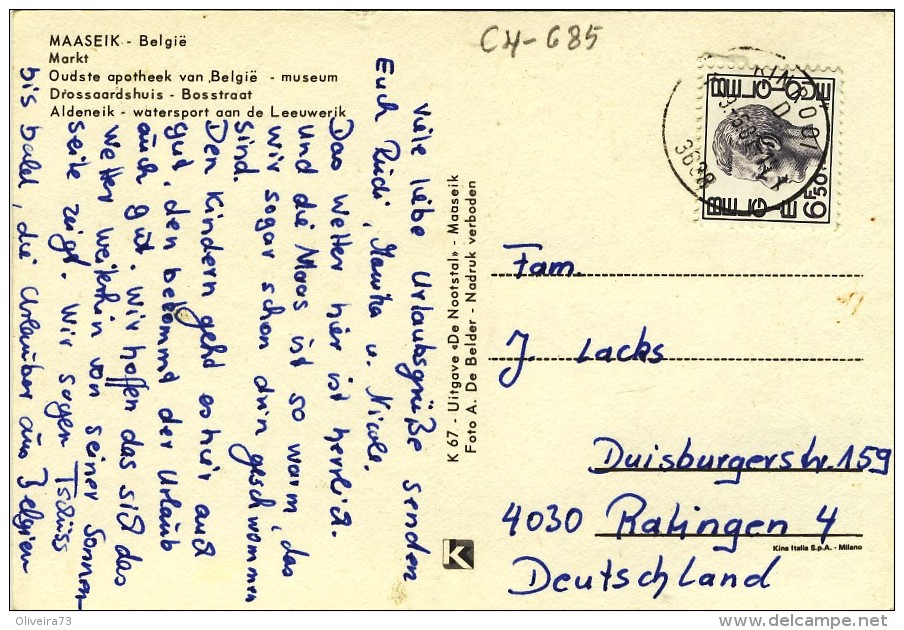 MAASEIK - België
Markt
Oudste apotheek van België - museum
Drossaardshuis - Bosstraat
Aldeneik - watersport aan de Leeuwerik
CH-685
Viele liebe Urlaubsgrüße senden
Euch Rudi, Marika u. Nicole.
Das Wetter hier ist herrlich.
Und die Maas ist so warm, das
wir sogar schon drin geschwommen
sind.
Den Kindern geht es hir auch
gut, den bekommt der Urlaub
auch gut. Wir hoffen das sich das
Wetter weiterhin von seiner Sonnen-
seite zeigt. Wir sagen Tschüss
bis bald, die Urlauber aus Belgien
K 67 - Uitgave «De Nootstal» - Maaseik
Foto A. De Belder - Nadruk verboden
BELGIQUE
BELGIE
6F50
KINROOI
3638
Fam.
J. Lacks
Duisburgerstr. 159
4030 Ratingen 4
Deutschland
K
Kina Italia S.p.A. - Milano
Oliveira73
delcampe.net